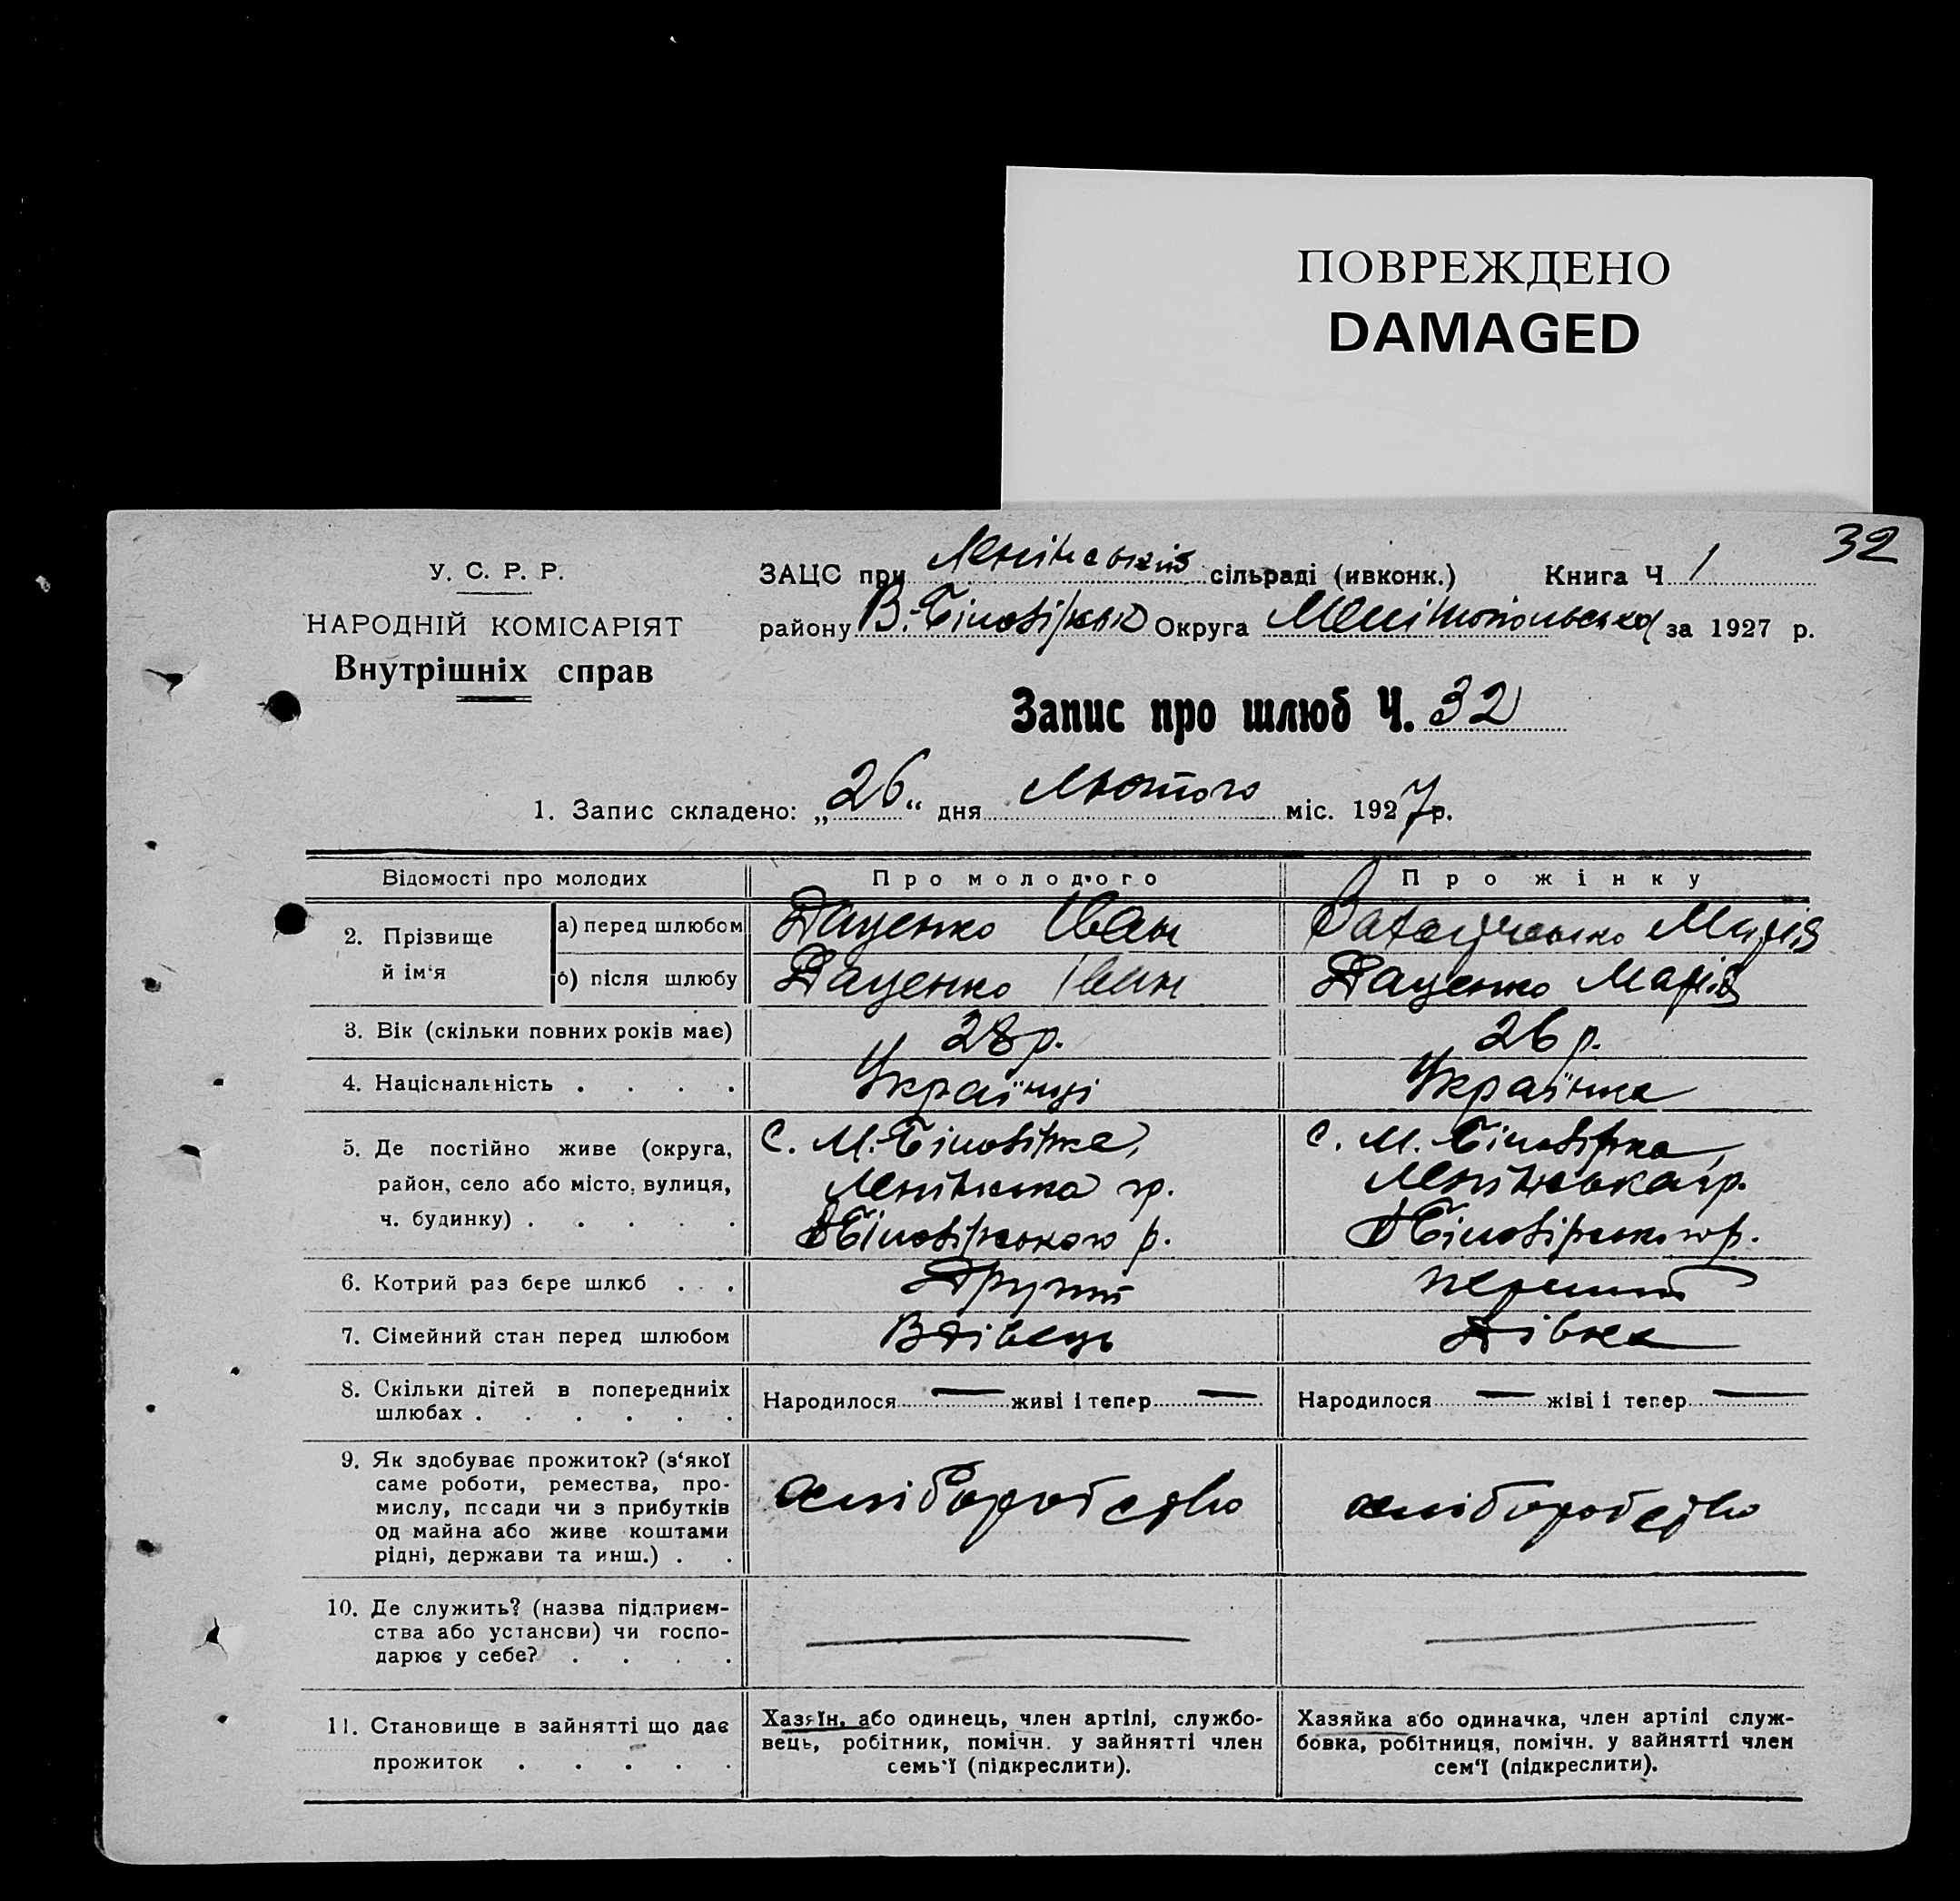 ПОВРЕЖДЕНО
DAMAGED
32
У. С. Р. Р.
НАРОДНІЙ КОМІСАРІЯТ
Внутрішніх справ
ЗАЦС при Ленінській сільраді (ивконк.) Книга Ч 1
району В.-Білозірськ Округа Мелітопольська за 1927 р.
Запис про шлюб Ч. 32
1. Запис складено: „26“ дня Лютого міс. 1927 р.
Відомості про молодих Про молодого Про жінку
2. Прізвище й ім‘я
а) перед шлюбом Даценко Іван Марія
б) після шлюбу Даценко Іван Даценко Марія
3. Вік (скільки повних років має) 28 р. 26 р.
4. Націснальність . . . . Українці Українка
5. Де постійно живе (округа,
район, село або місто, вулиця,
ч. будинку) . . . . .
с. М.-Білозірка,
Ленінська гр.
Білозірського р.
с. М.-Білозірка,
Ленінська гр.
Білозірського р.
6. Котрий раз бере шлюб . . . Другий перший
7. Сімейний стан перед шлюбом Вдівець дівка
8. Скільки дітей в попередниіх
шлюбах . . . . . .
Народилося — живі і тепер —
Народилося — жіві і тепер —
9. Як здобуває прожиток? (з‘якої
саме роботи, ремества, про-
мислу, посади чи з прибутків
од майна або живе коштами
рідні, держави та инш.) . .
хліборобство
хліборобство
10. Де служить? (назва підприєм-
ства або установи) чи госпо-
дарює у себе? . . . .
11. Становище в зайнятті що дає
прожиток . . . . .
Хазяїн, або одинець, член артілі, службо-
вець, робітник, помічн. у зайнятті член
семь‘ї (підкреслити).
Хазяйка або одиначка, член артілі служ-
бовка, робітниця, помічн. у зайнятті член
сем‘ї (підкреслити).